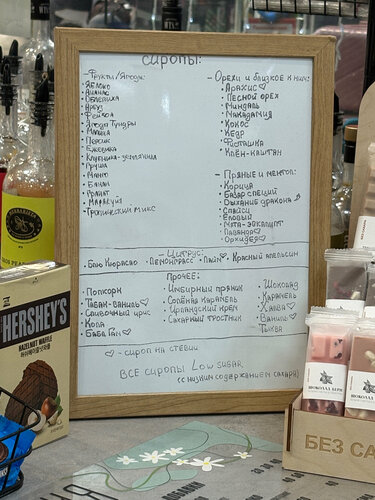 СИРОПЫ:
- Фрукты/Ягоды:
• Яблоко
• Ананас
• Облепиха
• Арбуз
• Фейхоа
• Ягода Тундры
• Малина
• Персик
• Ежевика
• Клубника-земляника
• Груша
• Манго
• Банан
• Маракуйя
• Тропический микс
- Орехи и близкое к ним:
• Арахис♡
• Лесной орех
• Миндаль
• Макадамия
• Кокос
• Кедр
• Фисташка
• Клён-каштан
- Пряные и ментол:
• Корица
• Базар специй
• Дыхание дракона
• Спайси
• Еловый
• Мята-эвкалипт
• Лаванда♡
• Орхидея♡
- Цитрус:
• Блю Кюрасао • Лемонграсс • Лайм♡ • Красный апельсин
Прочее:
• Попкорн
• Табак-ваниль♡
• Сливочный ирис
• Кола
• Бабл Гам♡
• Имбирный пряник
• Солёная карамель
• Ирландский крем
• Сахарный тростник
• Шоколад
• Карамель
• Халва♡
• Ваниль♡
• Тыква
♡ - сироп на стевии
ВСЕ СИРОПЫ LOW SUGAR
(с низким содержанием сахара)
HERSHEY'S
HAZELNUT WAFFLE
БЕЗ СА